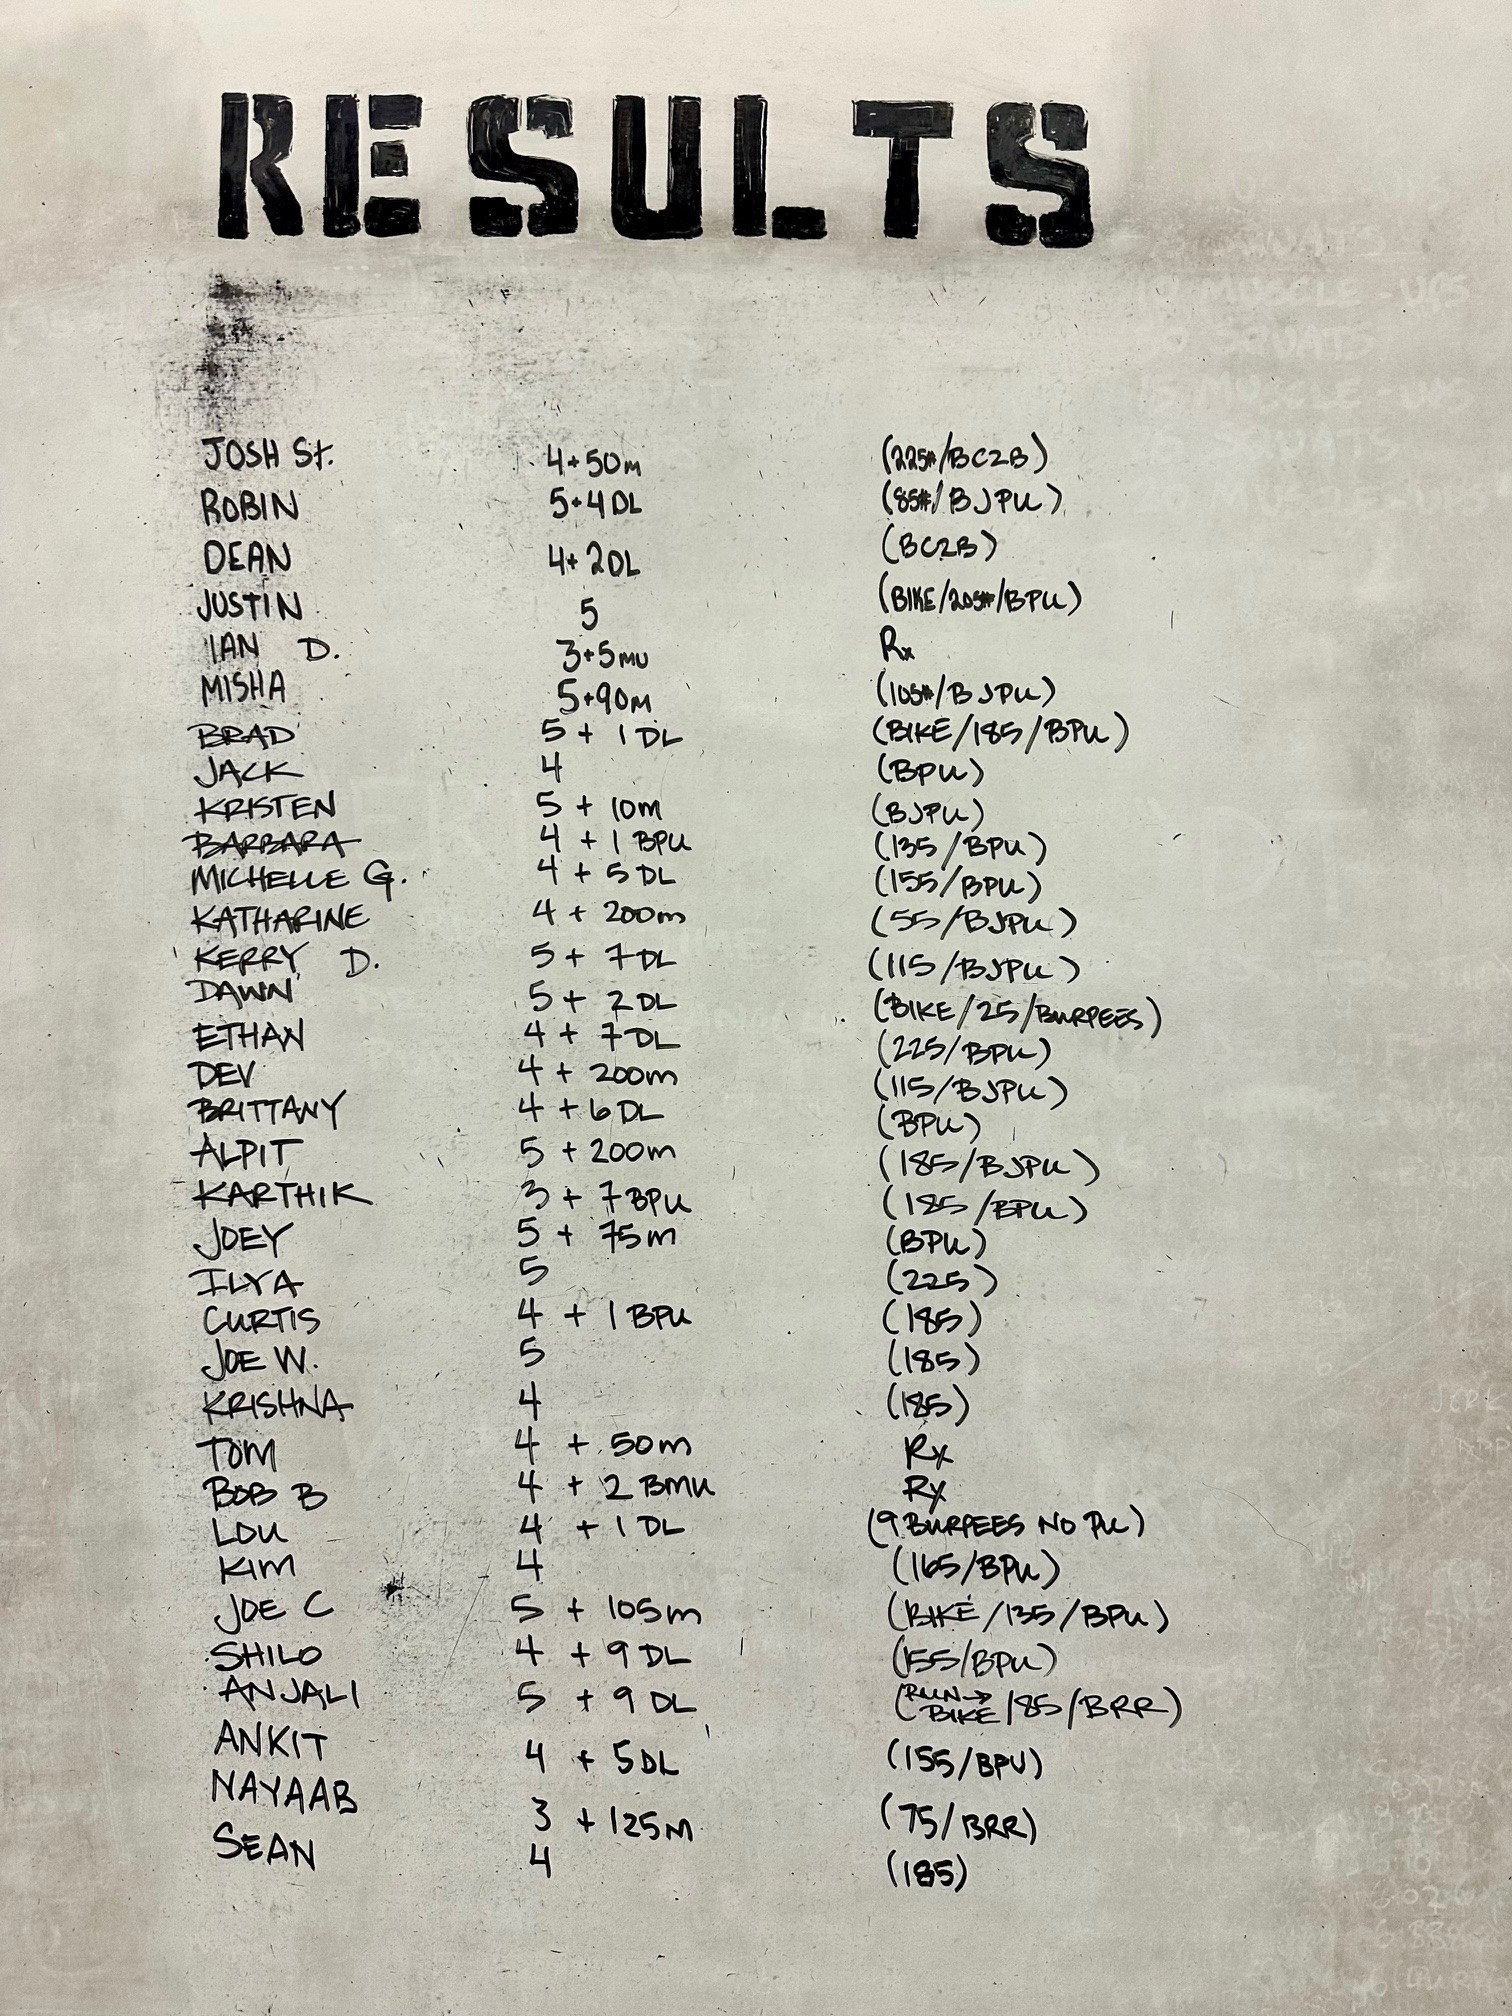 RESULTS
JOSH St. 4+50m (225#/BC2B)
ROBIN 5+4DL (85#/BJPU)
DEAN 4+2DL (BC2B)
JUSTIN 5 (BIKE/205#/BPU)
IAN D. 3+5MU Rx
MISHA 5+90M (105#/BJPU)
BRAD 5 + 1 DL (BIKE/185/BPU)
JACK 4 (BPU)
KRISTEN 5 + 10m (BJPU)
BARBARA 4 + 1 BPU (135/BPU)
MICHELLE G. 4 + 5 DL (155/BPU)
KATHARINE 4 + 200m (55/BJPU)
KERRY D. 5 + 7DL (115/BJPU)
DAWN 5 + 2 DL (BIKE/25/BURPEES)
ETHAN 4 + 7 DL (225/BPU)
DEV 4 + 200m (115/BJPU)
BRITTANY 4 + 6 DL (BPU)
ALPIT 5 + 200m (185/BJPU)
KARTHIK 3 + 7 BPU (185/BPU)
JOEY 5 + 75m (BPU)
ILYA 5 (225)
CURTIS 4 + 1 BPU (185)
JOE W. 5 (185)
KRISHNA 4 (185)
TOM 4 + 50m Rx
BOB B 4 + 2 BMU Rx
LOU 4 + 1 DL (9 BURPEES NO PU)
KIM 4 (165/BPU)
JOE C 5 + 105m (BIKE/135/BPU)
SHILO 4 + 9 DL (155/BPU)
ANJALI 5 + 9 DL (RUN→BIKE/85/BRR)
ANKIT 4 + 5DL (155/BPU)
NAYAAB 3 + 125M (75/BRR)
SEAN 4 (185)